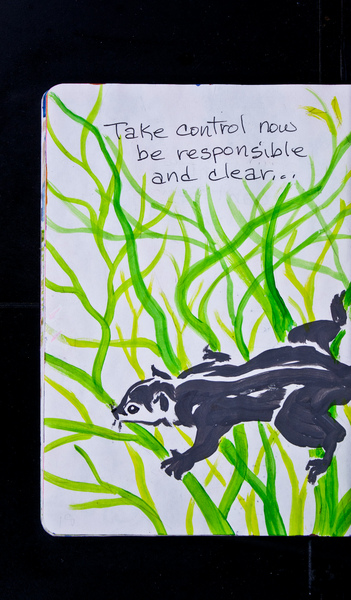 Take control now
be responsible
and clear...